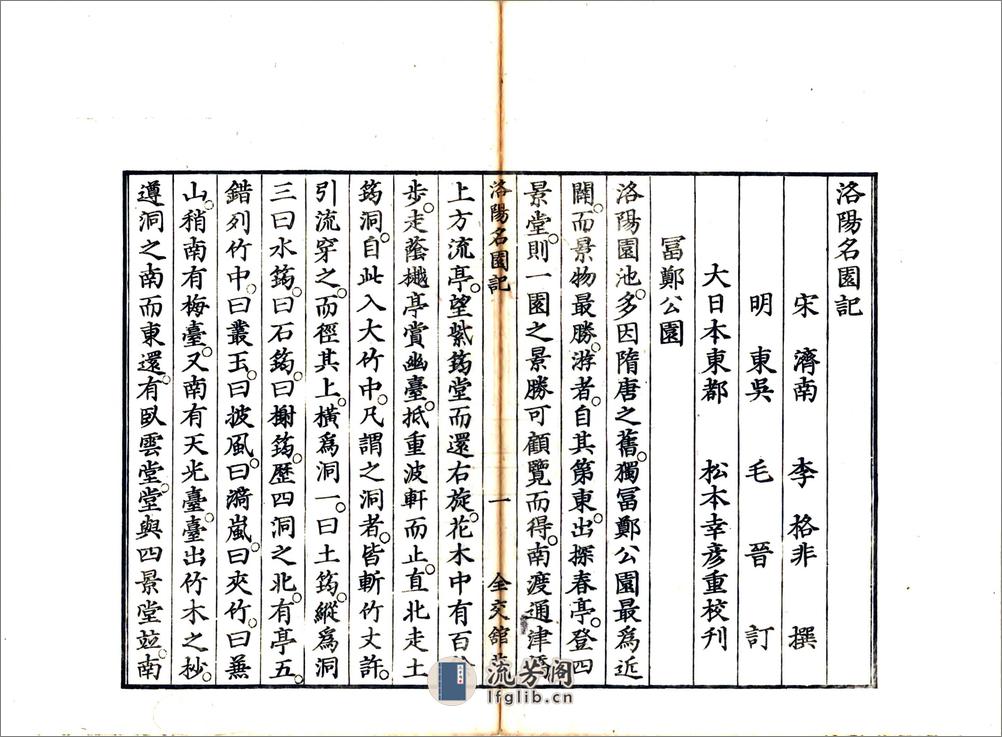 洛陽名園記
宋 濟南 李格非 撰
明 東吳 毛晉 訂
大日本東都 松本幸彥重校刊
冨鄭公園
洛陽園池。多因隋唐之舊。獨冨鄭公園最爲近
闢。而景物最勝。游者。自其第東出。探春亭。登四
景堂。則一園之景勝可顧覽而得。南渡通津橋
洛陽名園記 一 全交館
上方流亭。望紫筠堂而還右旋。花木中有百餘
步。走蔭樾亭賞幽臺。抵重波軒而止。直北走土
筠洞。自此入大竹中。凡謂之洞者。皆斬竹丈許。
引流穿之。而徑其上。橫爲洞一。曰土筠。縱爲洞
三曰水筠。曰石筠。曰榭筠。歷四洞之北。有亭五。
錯列竹中。曰叢玉。曰披風。曰漪嵐。曰夾竹。曰蒹
山。稍南有梅臺。又南有天光臺。臺出竹木之杪。
遵洞之南而東還。有臥雲堂。堂與四景堂竝。南
流芳阁
lfglib.cn